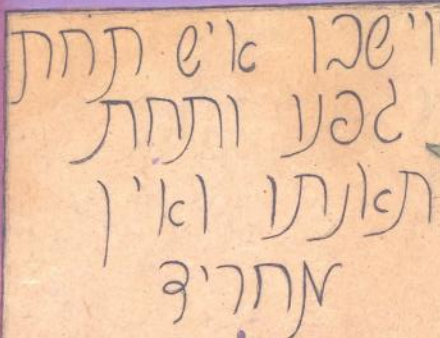 וישבו איש תחת
גפנו ותחת
תאנתו ואין
מחריד